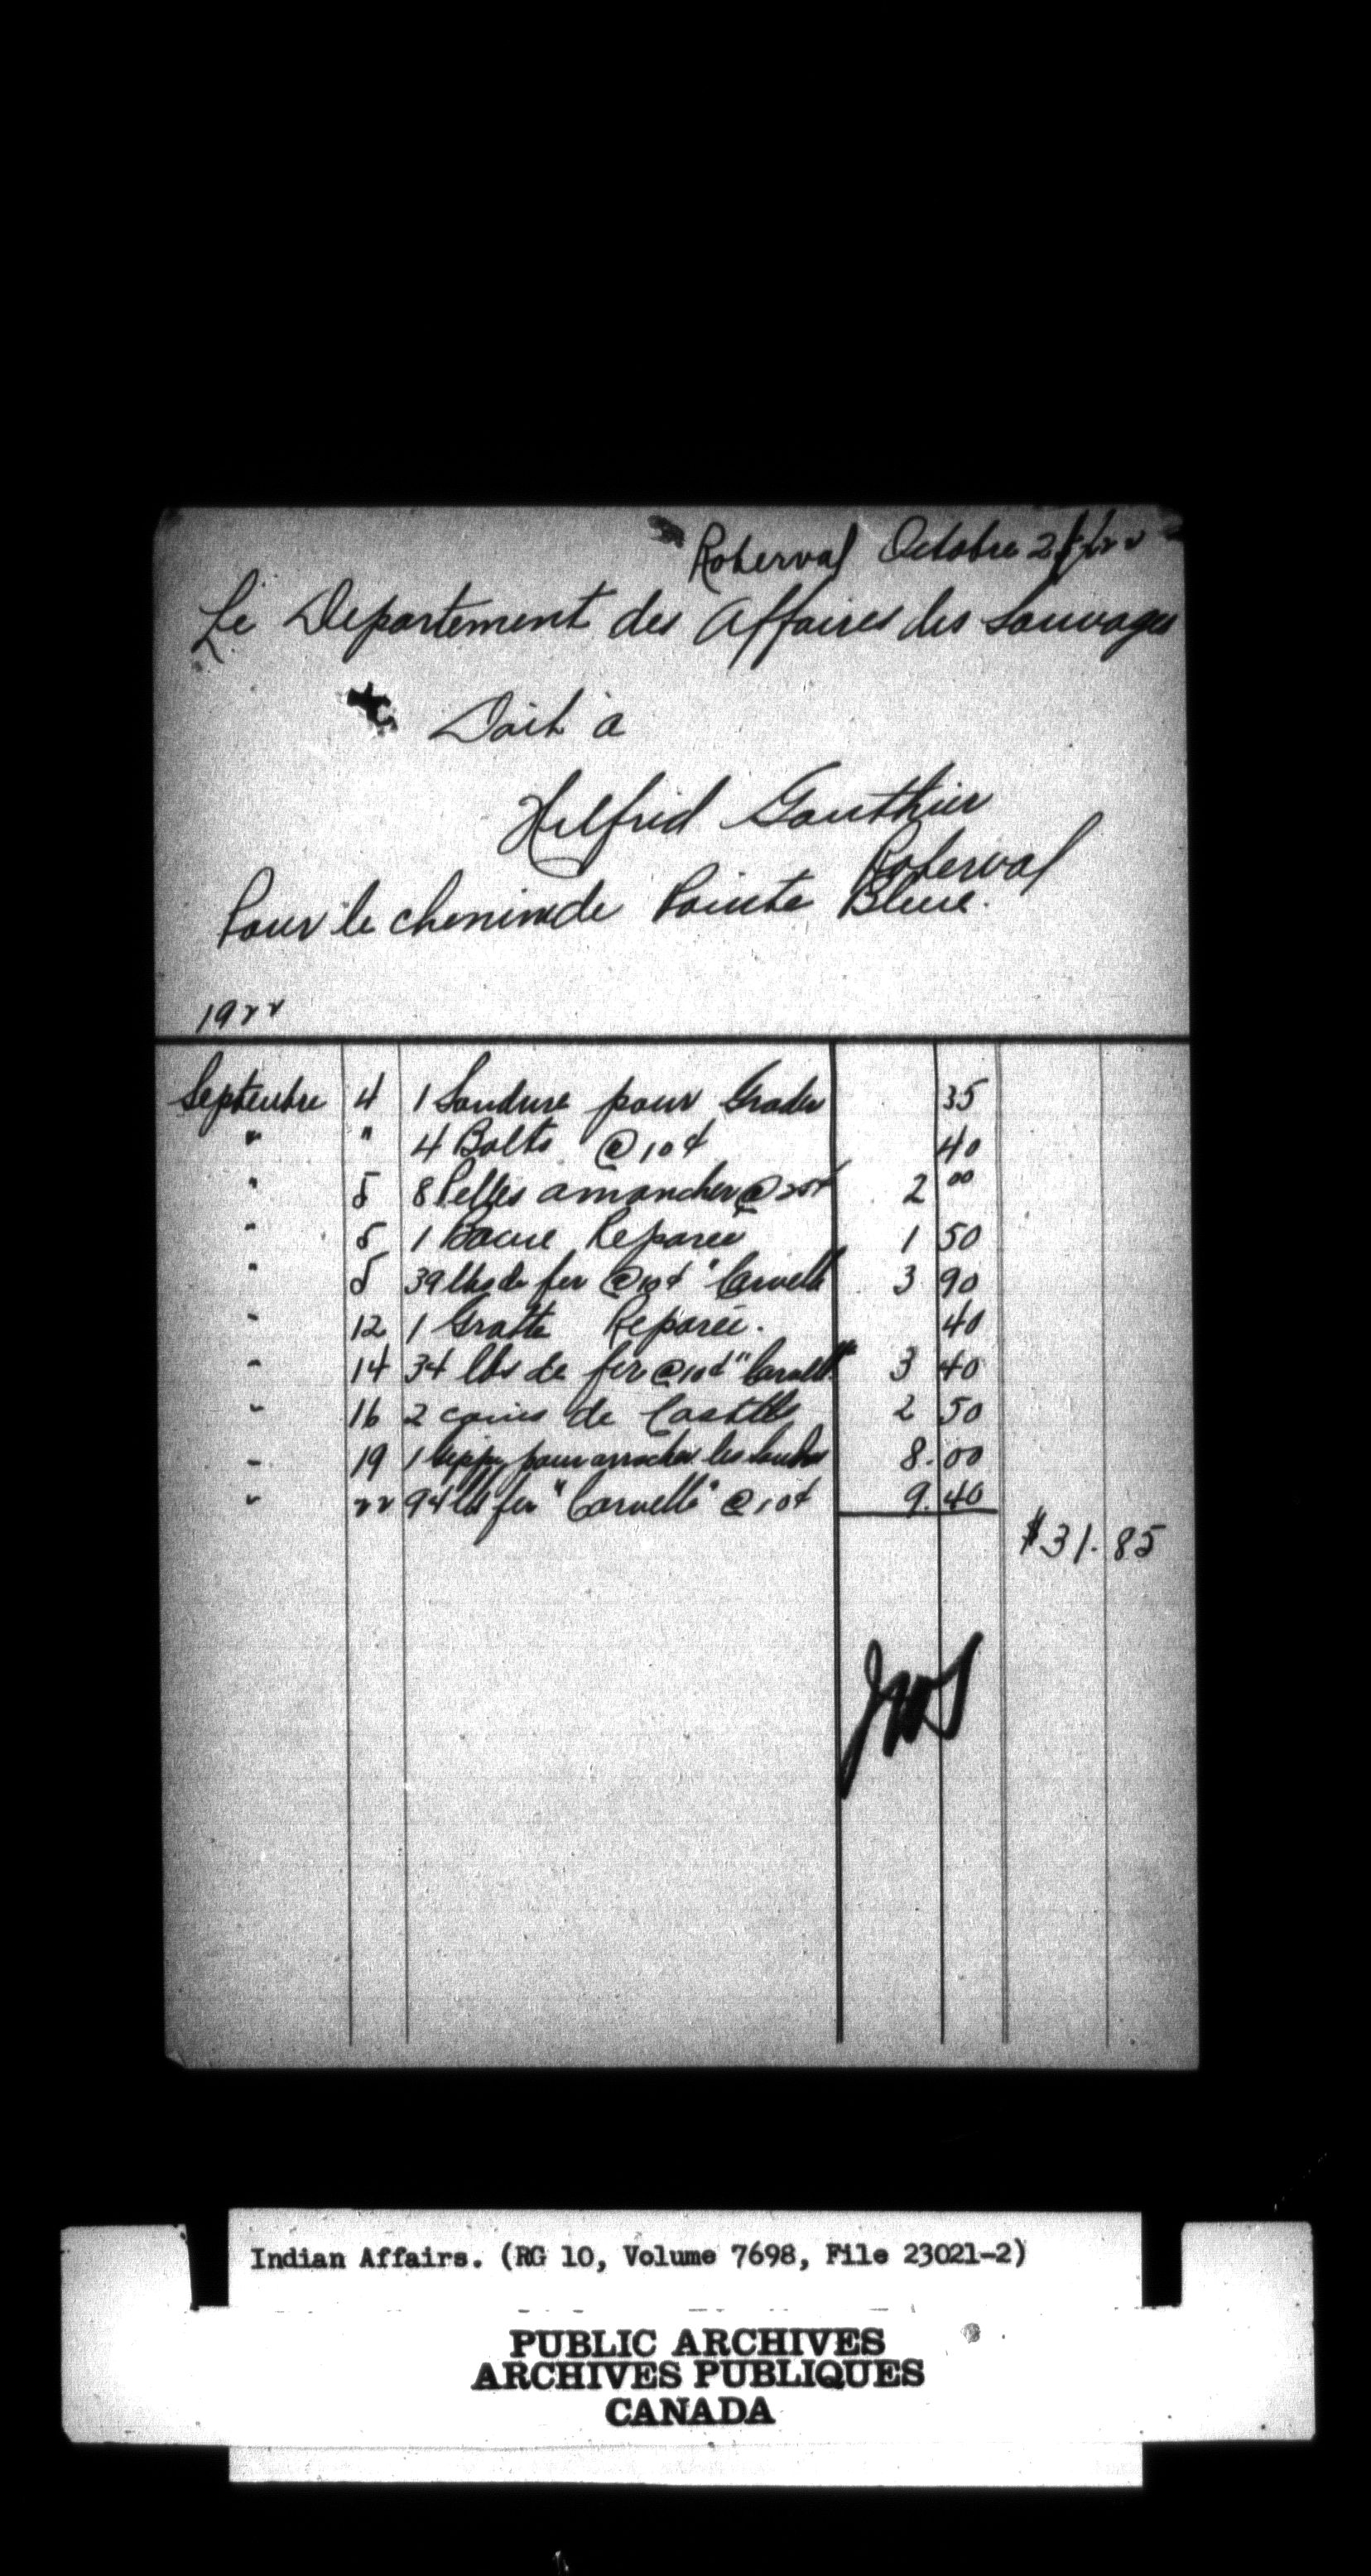 Roberval Octobre
Le Departement des Affaires des Sauvages
Doit à
Wilfrid Gauthier
Roberval
Pour le chemin de Pointe Bleue.
1922
Septembre 4 1 Soudure pour Grader 35
" " 4 Bolts @ 10¢ 40
" 5 8 Pelles amancher @ 25¢ 2 00
" 5 1 Reparée 1 50
" 5 39 lbs de fer @ 10¢ "Carvelle" 3 90
" 12 1 Gratte Reparée. 40
" 14 34 lbs de fer @ 10¢ "Carvelle" 3 40
" 16 2 de 2 50
" 19 1 pour arracher les 8.00
" 22 94 lbs fer "Carvelle" @ 10¢ 9.40
$31.85
Indian Affairs. (RG 10, Volume 7698, File 23021-2)
PUBLIC ARCHIVES
ARCHIVES PUBLIQUES
CANADA